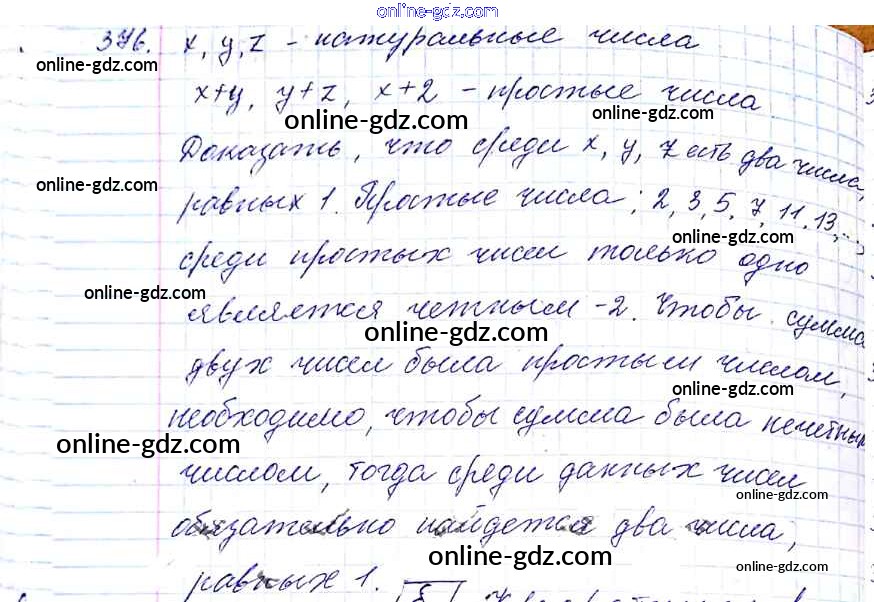 online-gdz.com
376. x, y, z – натуральные числа
online-gdz.com
x+y, y+z, x+z – простые числа
online-gdz.com
Доказать, что среди x, y, z есть два числа,
online-gdz.com
равных 1. Простые числа: 2, 3, 5, 7, 11, 13, ...,
online-gdz.com
среди простых чисел только одно
online-gdz.com
является четным – 2. Чтобы сумма
online-gdz.com
двух чисел была простым числом,
online-gdz.com
необходимо, чтобы сумма была нечетным
online-gdz.com
числом, тогда среди данных чисел
online-gdz.com
обязательно найдется два числа,
online-gdz.com
равных 1.
online-gdz.com